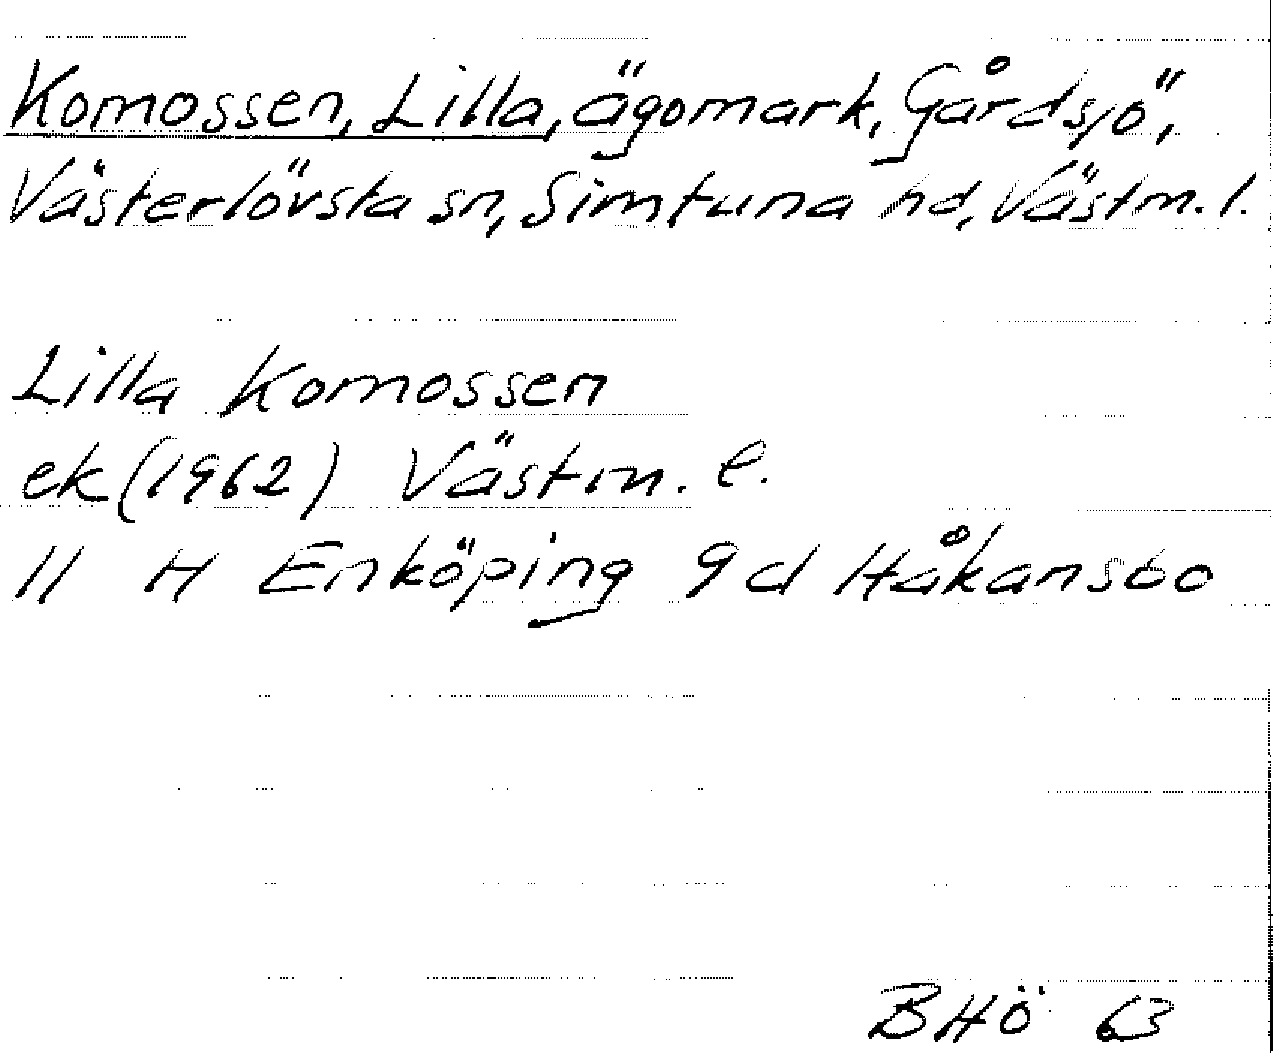 Komossen, Lilla, ägomark, Gårdsjö,
Västerlövsta sn, Simtuna hd, Västm. l.
Lilla Komossen
ek (1962) Västm. l.
11 H Enköping 9 d Håkansbo
BHÖ 63